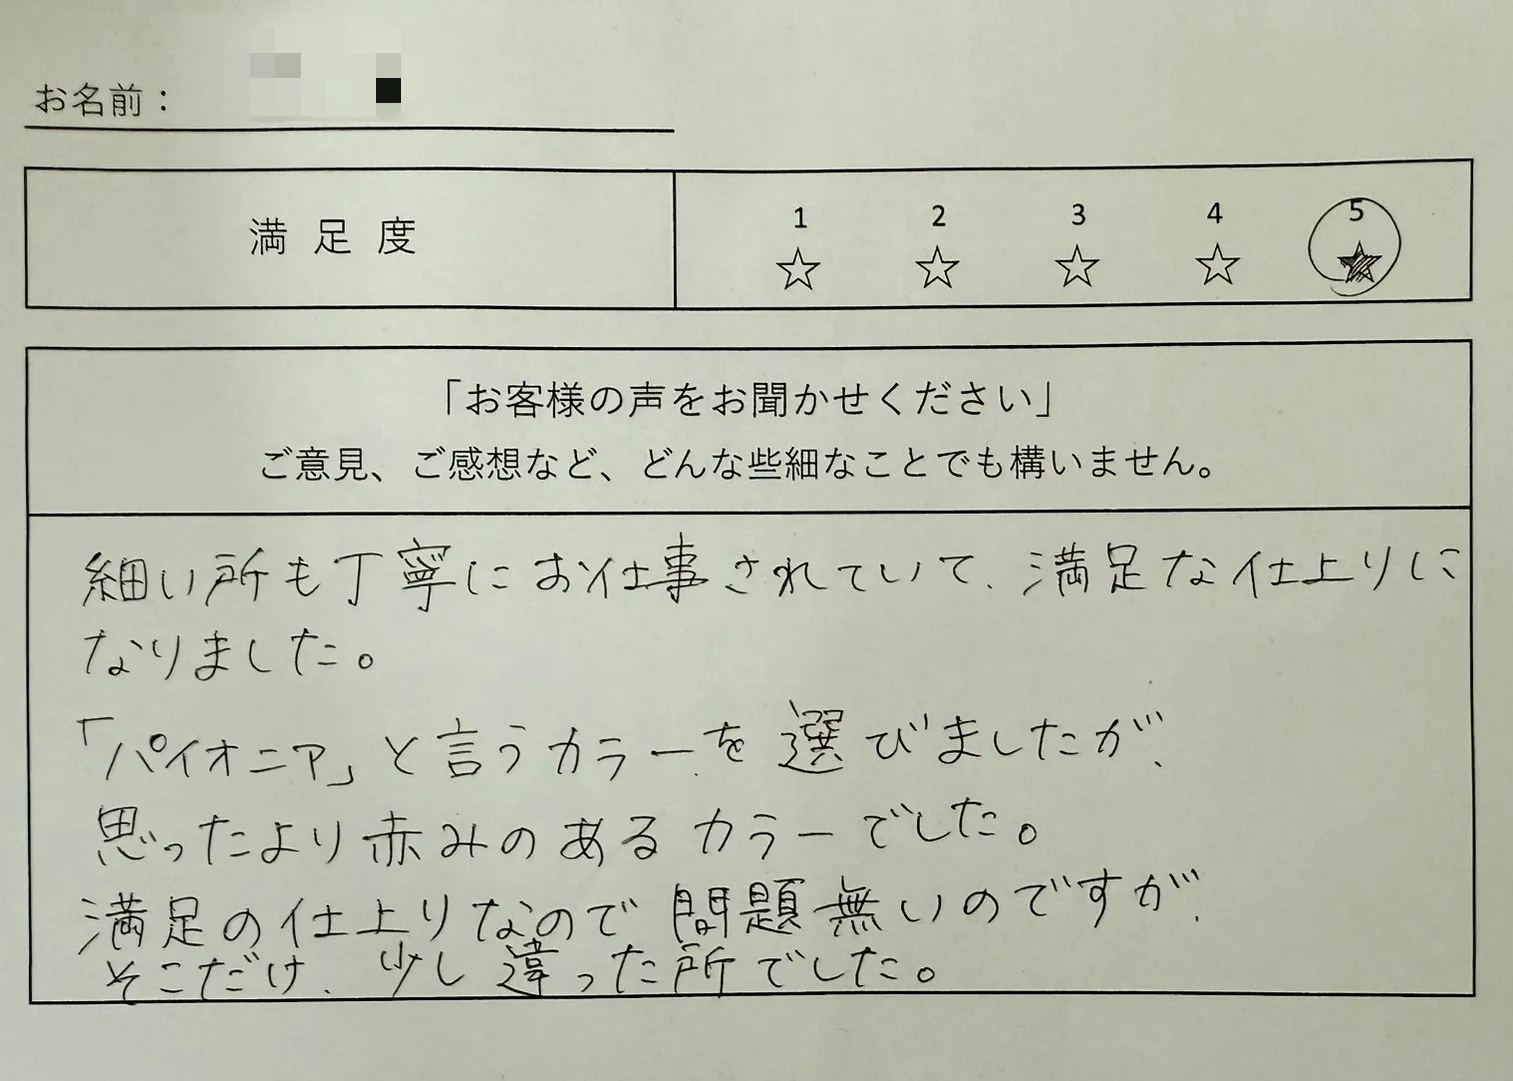 お名前：
満足度
1 2 3 4 5
☆ ☆ ☆ ☆ ★
「お客様の声をお聞かせください」
ご意見、ご感想など、どんな些細なことでも構いません。
細い所も丁寧にお仕事されていて、満足な仕上りに
なりました。
「パイオニア」と言うカラーを選びましたが、
思ったより赤みのあるカラーでした。
満足の仕上りなので問題無いのですが、
そこだけ、少し違った所でした。